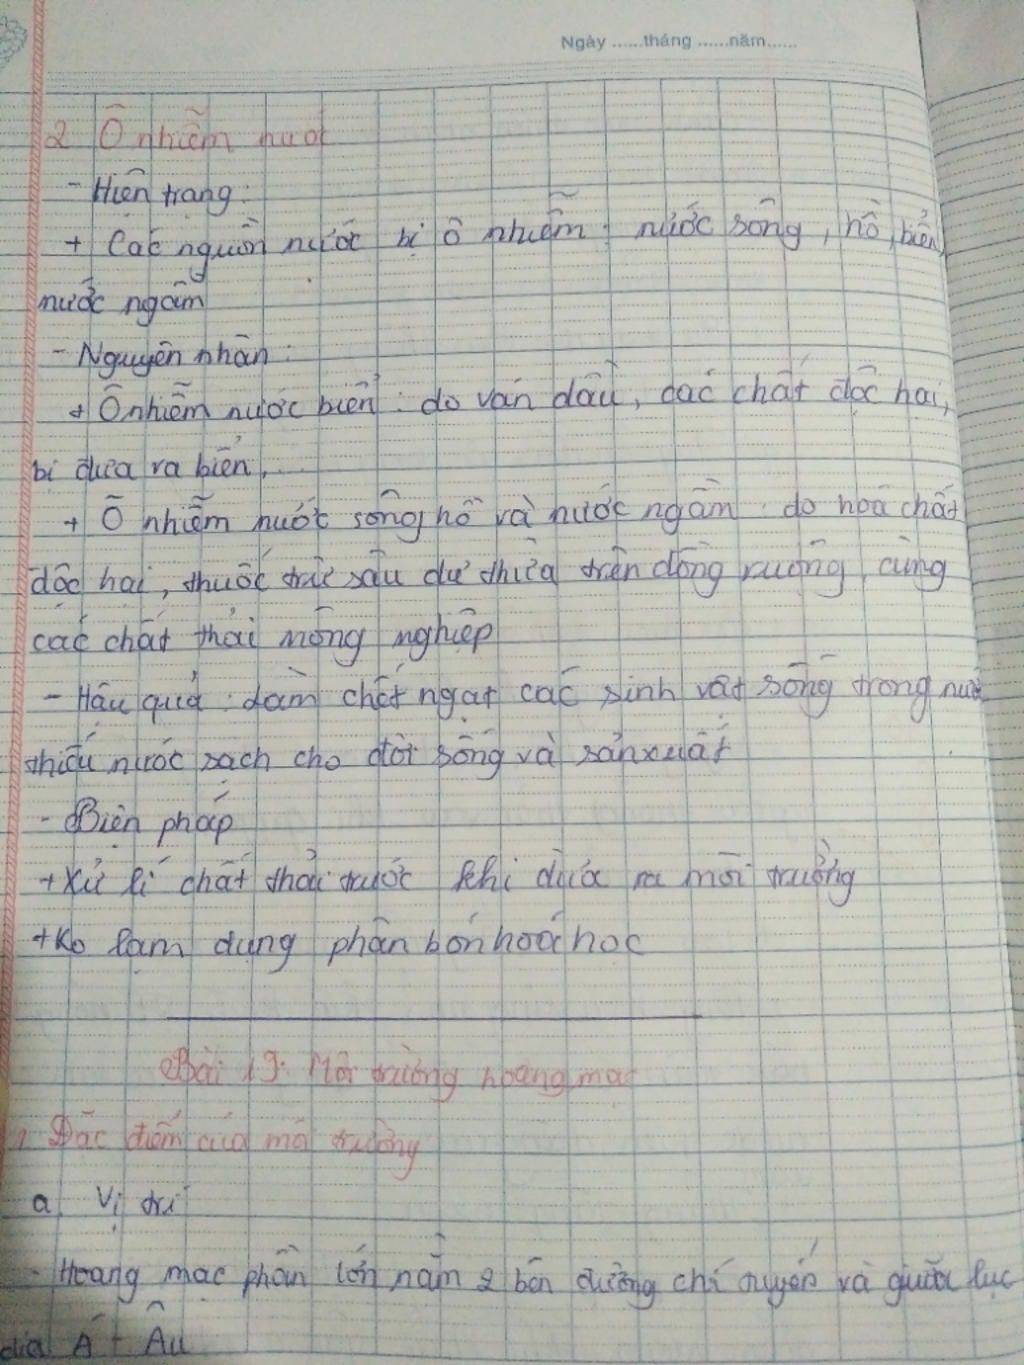 Ngày ......tháng ......năm......
2 Ô nhiễm nước
- Hiện trạng:
+ Các nguồn nước bị ô nhiễm: nước sông, hồ, biển,
nước ngầm
- Nguyên nhân:
+ Ô nhiễm nước biển: do ván dầu, các chất độc hại,
bị đưa ra biển,...
+ Ô nhiễm nước sông, hồ và nước ngầm: do hoá chất
độc hại, thuốc trừ sâu dư thừa trên đồng ruộng, cùng
các chất thải nông nghiệp
- Hậu quả: làm chết ngạt các sinh vật sống trong nước
thiếu nước sạch cho đời sống và sản xuất
- Biện pháp
+ Xử lí chất thải trước khi đưa ra môi trường
+ Ko lạm dụng phân bón hoá học
Bài 19: Môi trường hoang mạc
1 Đặc điểm của môi trường
a, Vị trí
- Hoang mạc phần lớn nằm 2 bên đường chí tuyến và giữa lục
địa Á - Âu